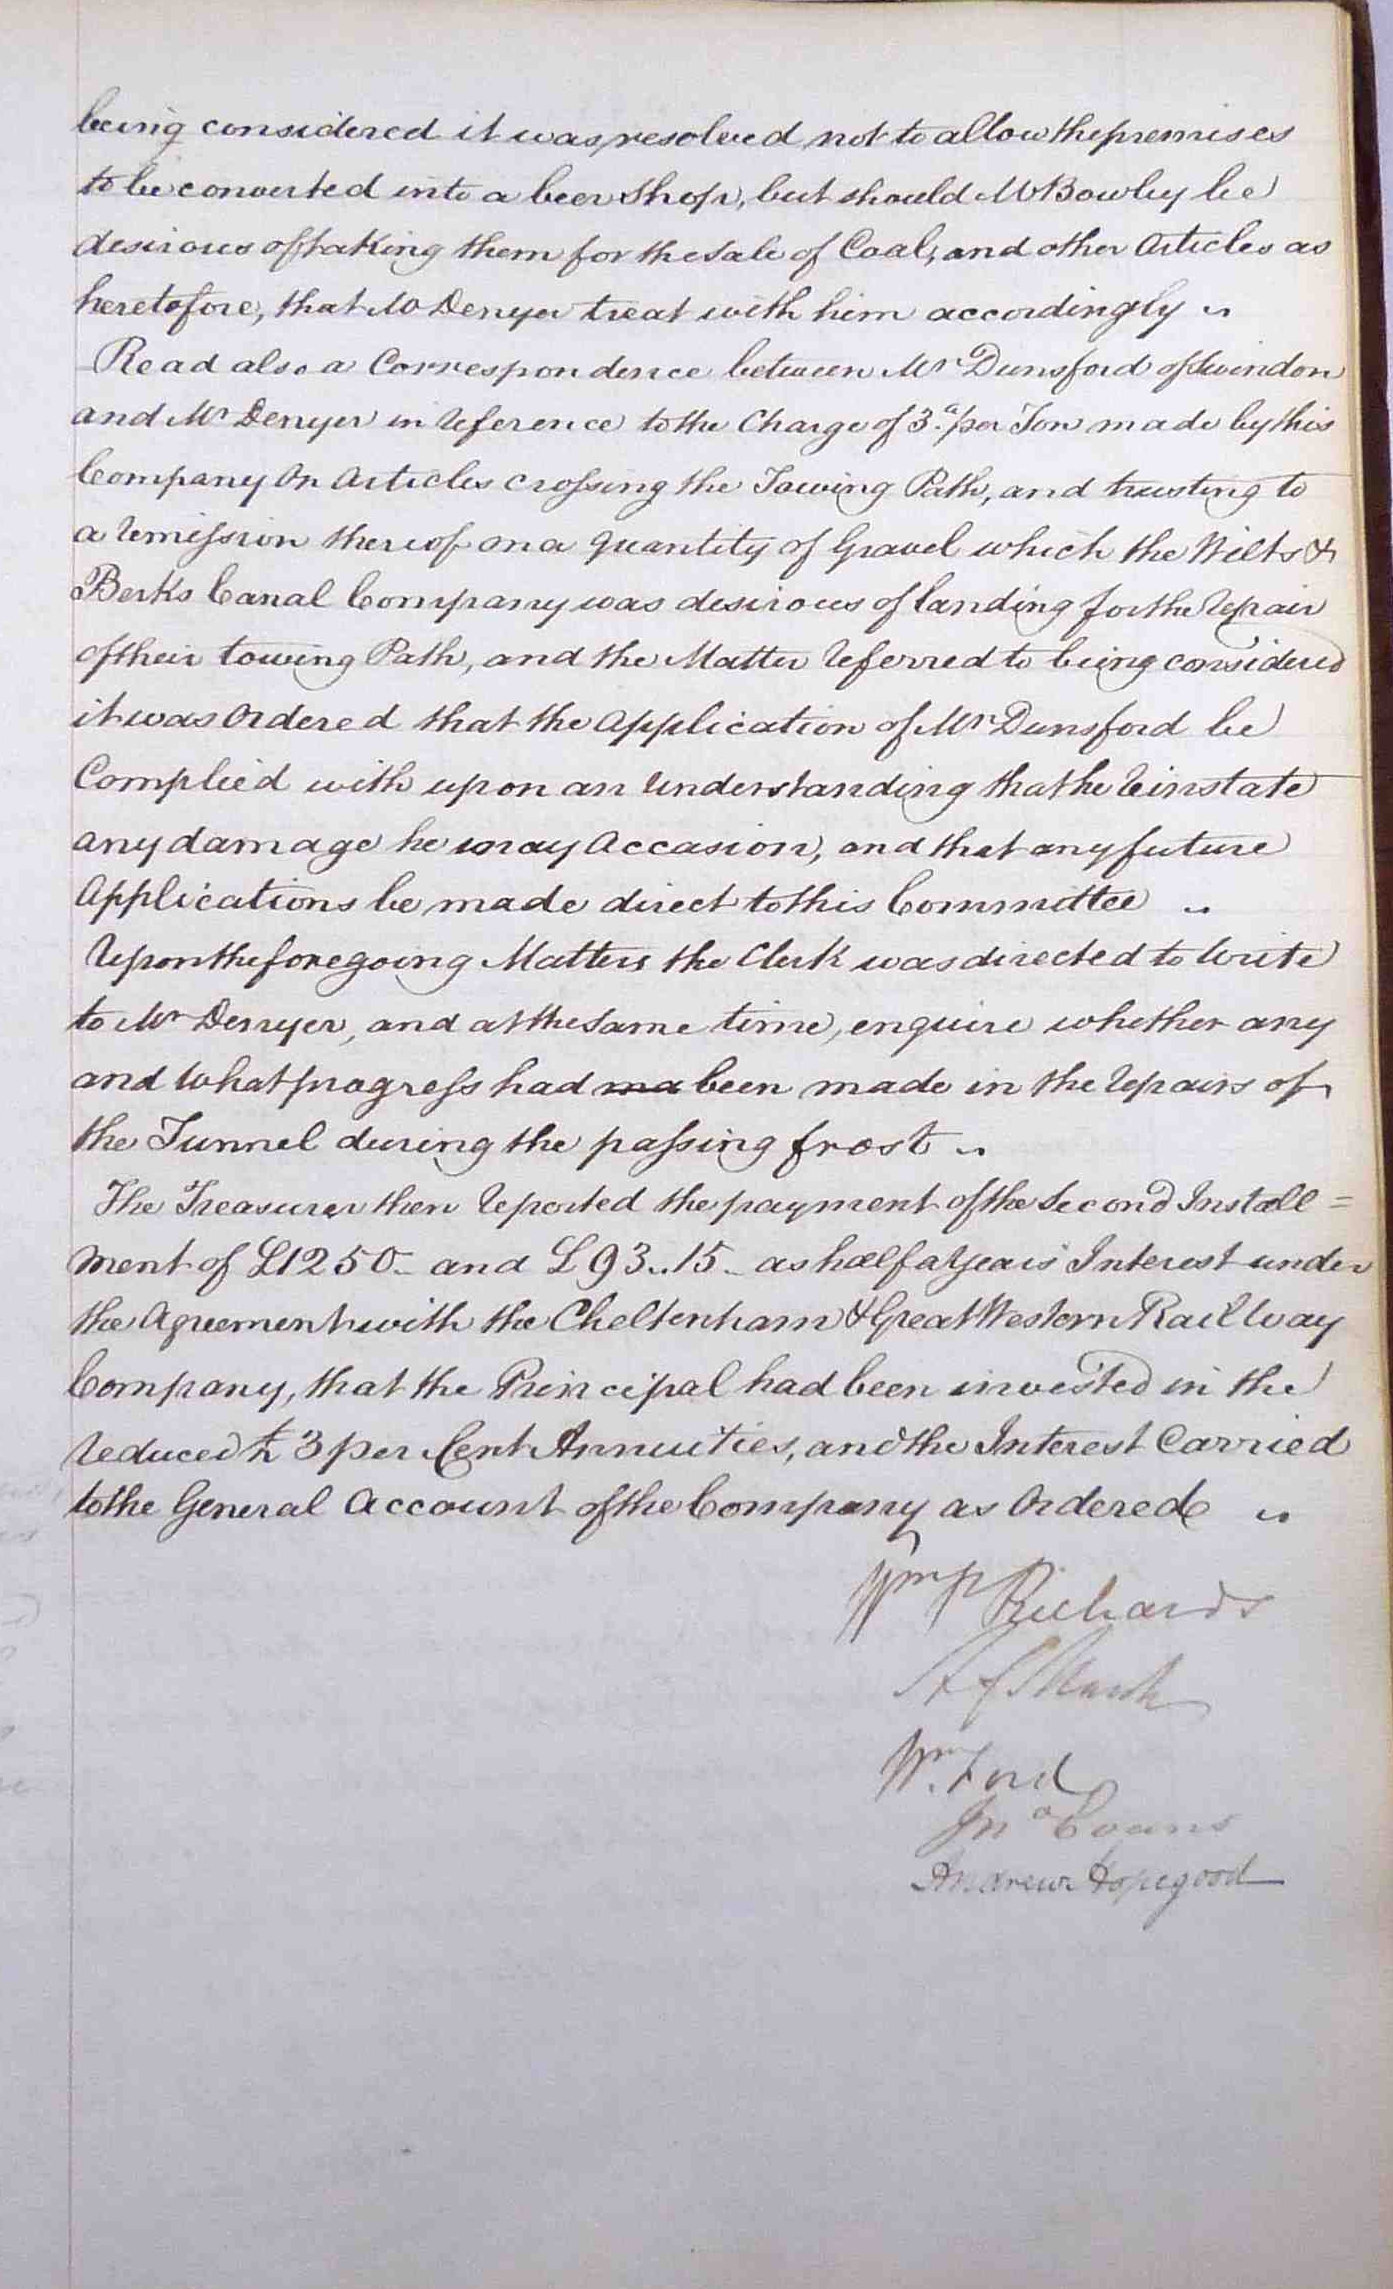 being considered it was resolved not to allow the premises
to be converted into a beer Shop, but should Mr Bowley be
desirous of taking them for the Sale of Coal, and other Articles as
heretofore, that Mr Denyer treat with him accordingly "
Read also a Correspondence between Mr Dunsford of Swindon
and Mr Denyer in reference to the Charge of 3.d per Ton made by this
Company On Articles crossing the Towing Path, and trusting to
a remission thereof on a quantity of Gravel which the Wilts &
Berks Canal Company was desirous of landing for the repair
of their towing Path, and the Matter referred to being considered
it was Ordered that the Application of Mr Dunsford be
Complied with upon an Understanding that he reinstate
any damage he may Occasion, and that any future
Applications be made direct to this Committee "
Upon the foregoing Matters the Clerk was directed to Write
to Mr Denyer, and at the same time, enquire whether any
and What progress had ma been made in the repairs of
the Tunnel during the passing frost "
The Treasurer then reported the payment of the Second Install=
ment of £1250 – and £93..15 – as half a Years Interest under
the Agreement with the Cheltenham & Great Western Railway
Company, that the Principal had been invested in the
reduced £ 3 per Cent Annuities, and the Interest Carried
to the General Account of the Company as Ordered "
Wm P Richards
Marsh
Wm. Ford
Jno Evans
Andrew Hopegood